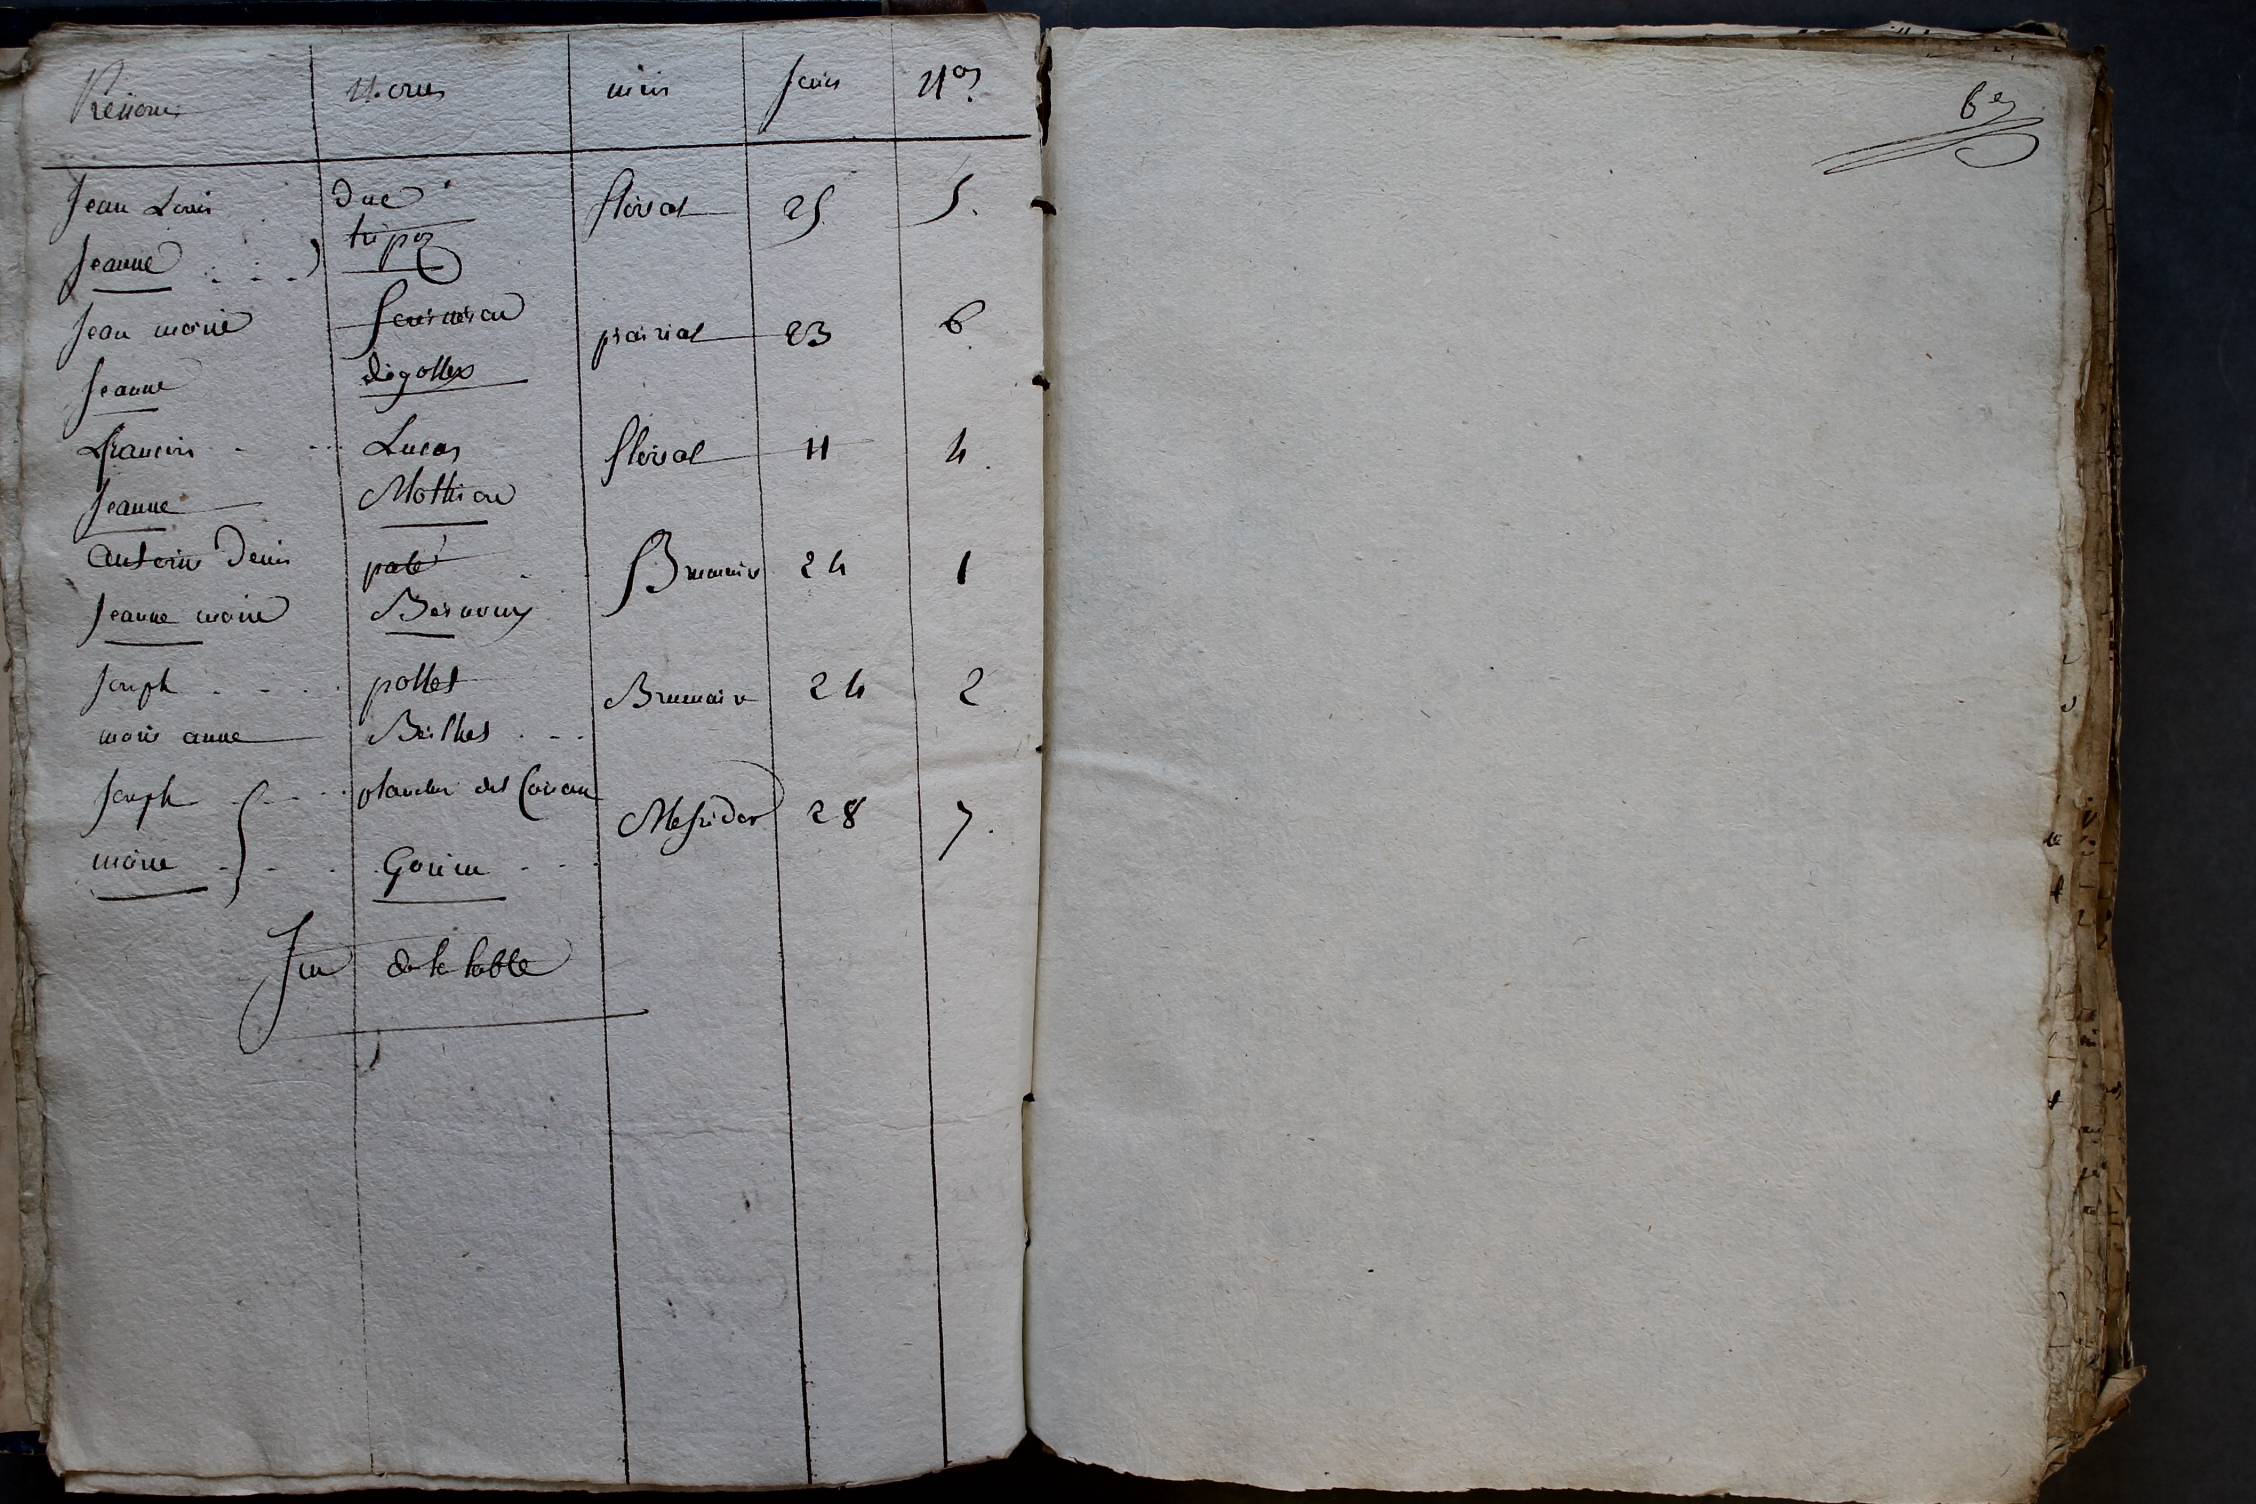 Prénoms Noms mois Jours Nos
Jean Louis duc floréal 25 5.
Jeanne tripoz
Jean marie
prairial 23 6
Jeanne digollex
francois Lucas floréal 11 4.
Jeanne Mathieu
antoine Denis paté Brumaire 24 1
Jeanne marie
Joseph pollet Brumaire 24 2
marie anne Berthet
Joseph planchet dit
Messidor 28 7.
marie Gorin
fin de la table
6e